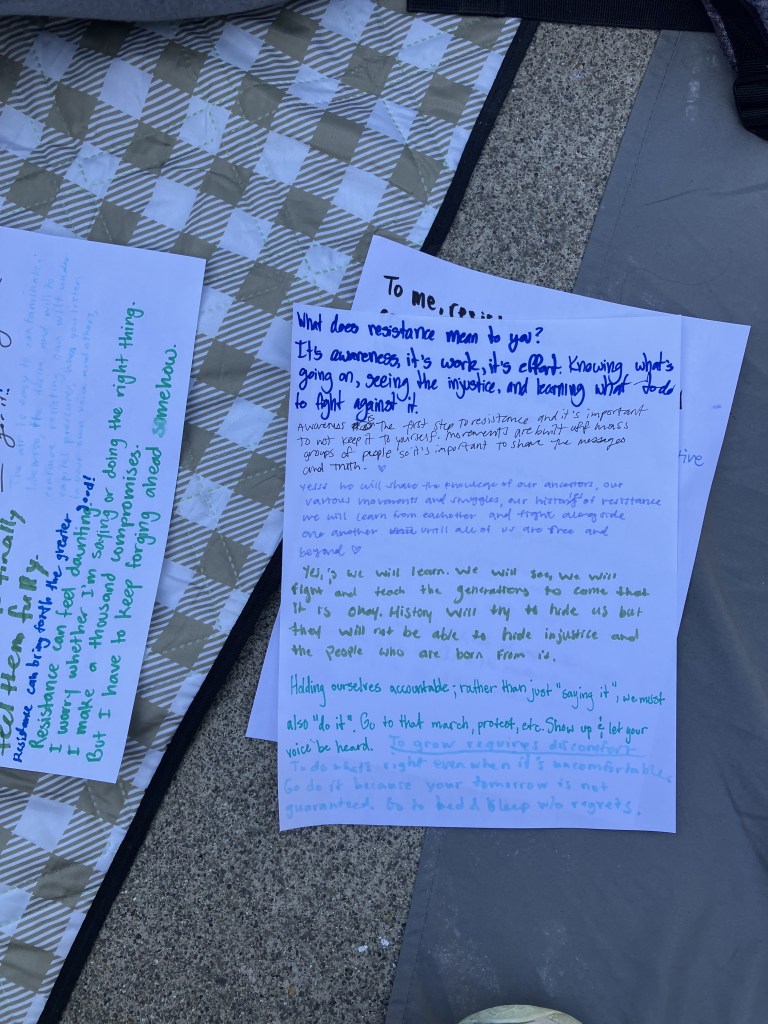 feel them fully.
Resistance can bring forth the greater good!
Resistance can feel daunting
I worry whether I'm saying or doing the right thing.
I make a thousand compromises.
But I have to keep forging ahead somehow.
To me,
What does resistance mean to you?
It's awareness, it's work, it's effort. Knowing what's
going on, seeing the injustice, and learning what to do
to fight against it.
Awareness is the first step to resistance and it's important
to not keep it to yourself. Movements are built off mass
groups of people so it's important to share the messages
and truth. ♡
yesss we will share the knowledge of our ancestors, our
various movements and struggles, our history of resistance
we will learn from eachother and fight alongside
one another until all of us are free and
beyond ♡
Yes, we will learn. We will see, we will
fight and teach the generations to come that
it is okay. History will try to hide us but
they will not be able to hide injustice and
the people who are born from it.
Holding ourselves accountable; rather than just "saying it", we must
also "do it". Go to that march, protest, etc. Show up & let your
voice be heard. To grow requires discomfort
To do what's right even when it's uncomfortable.
Go do it because your tomorrow is not
guaranteed. Go to bed & sleep w/o regrets.